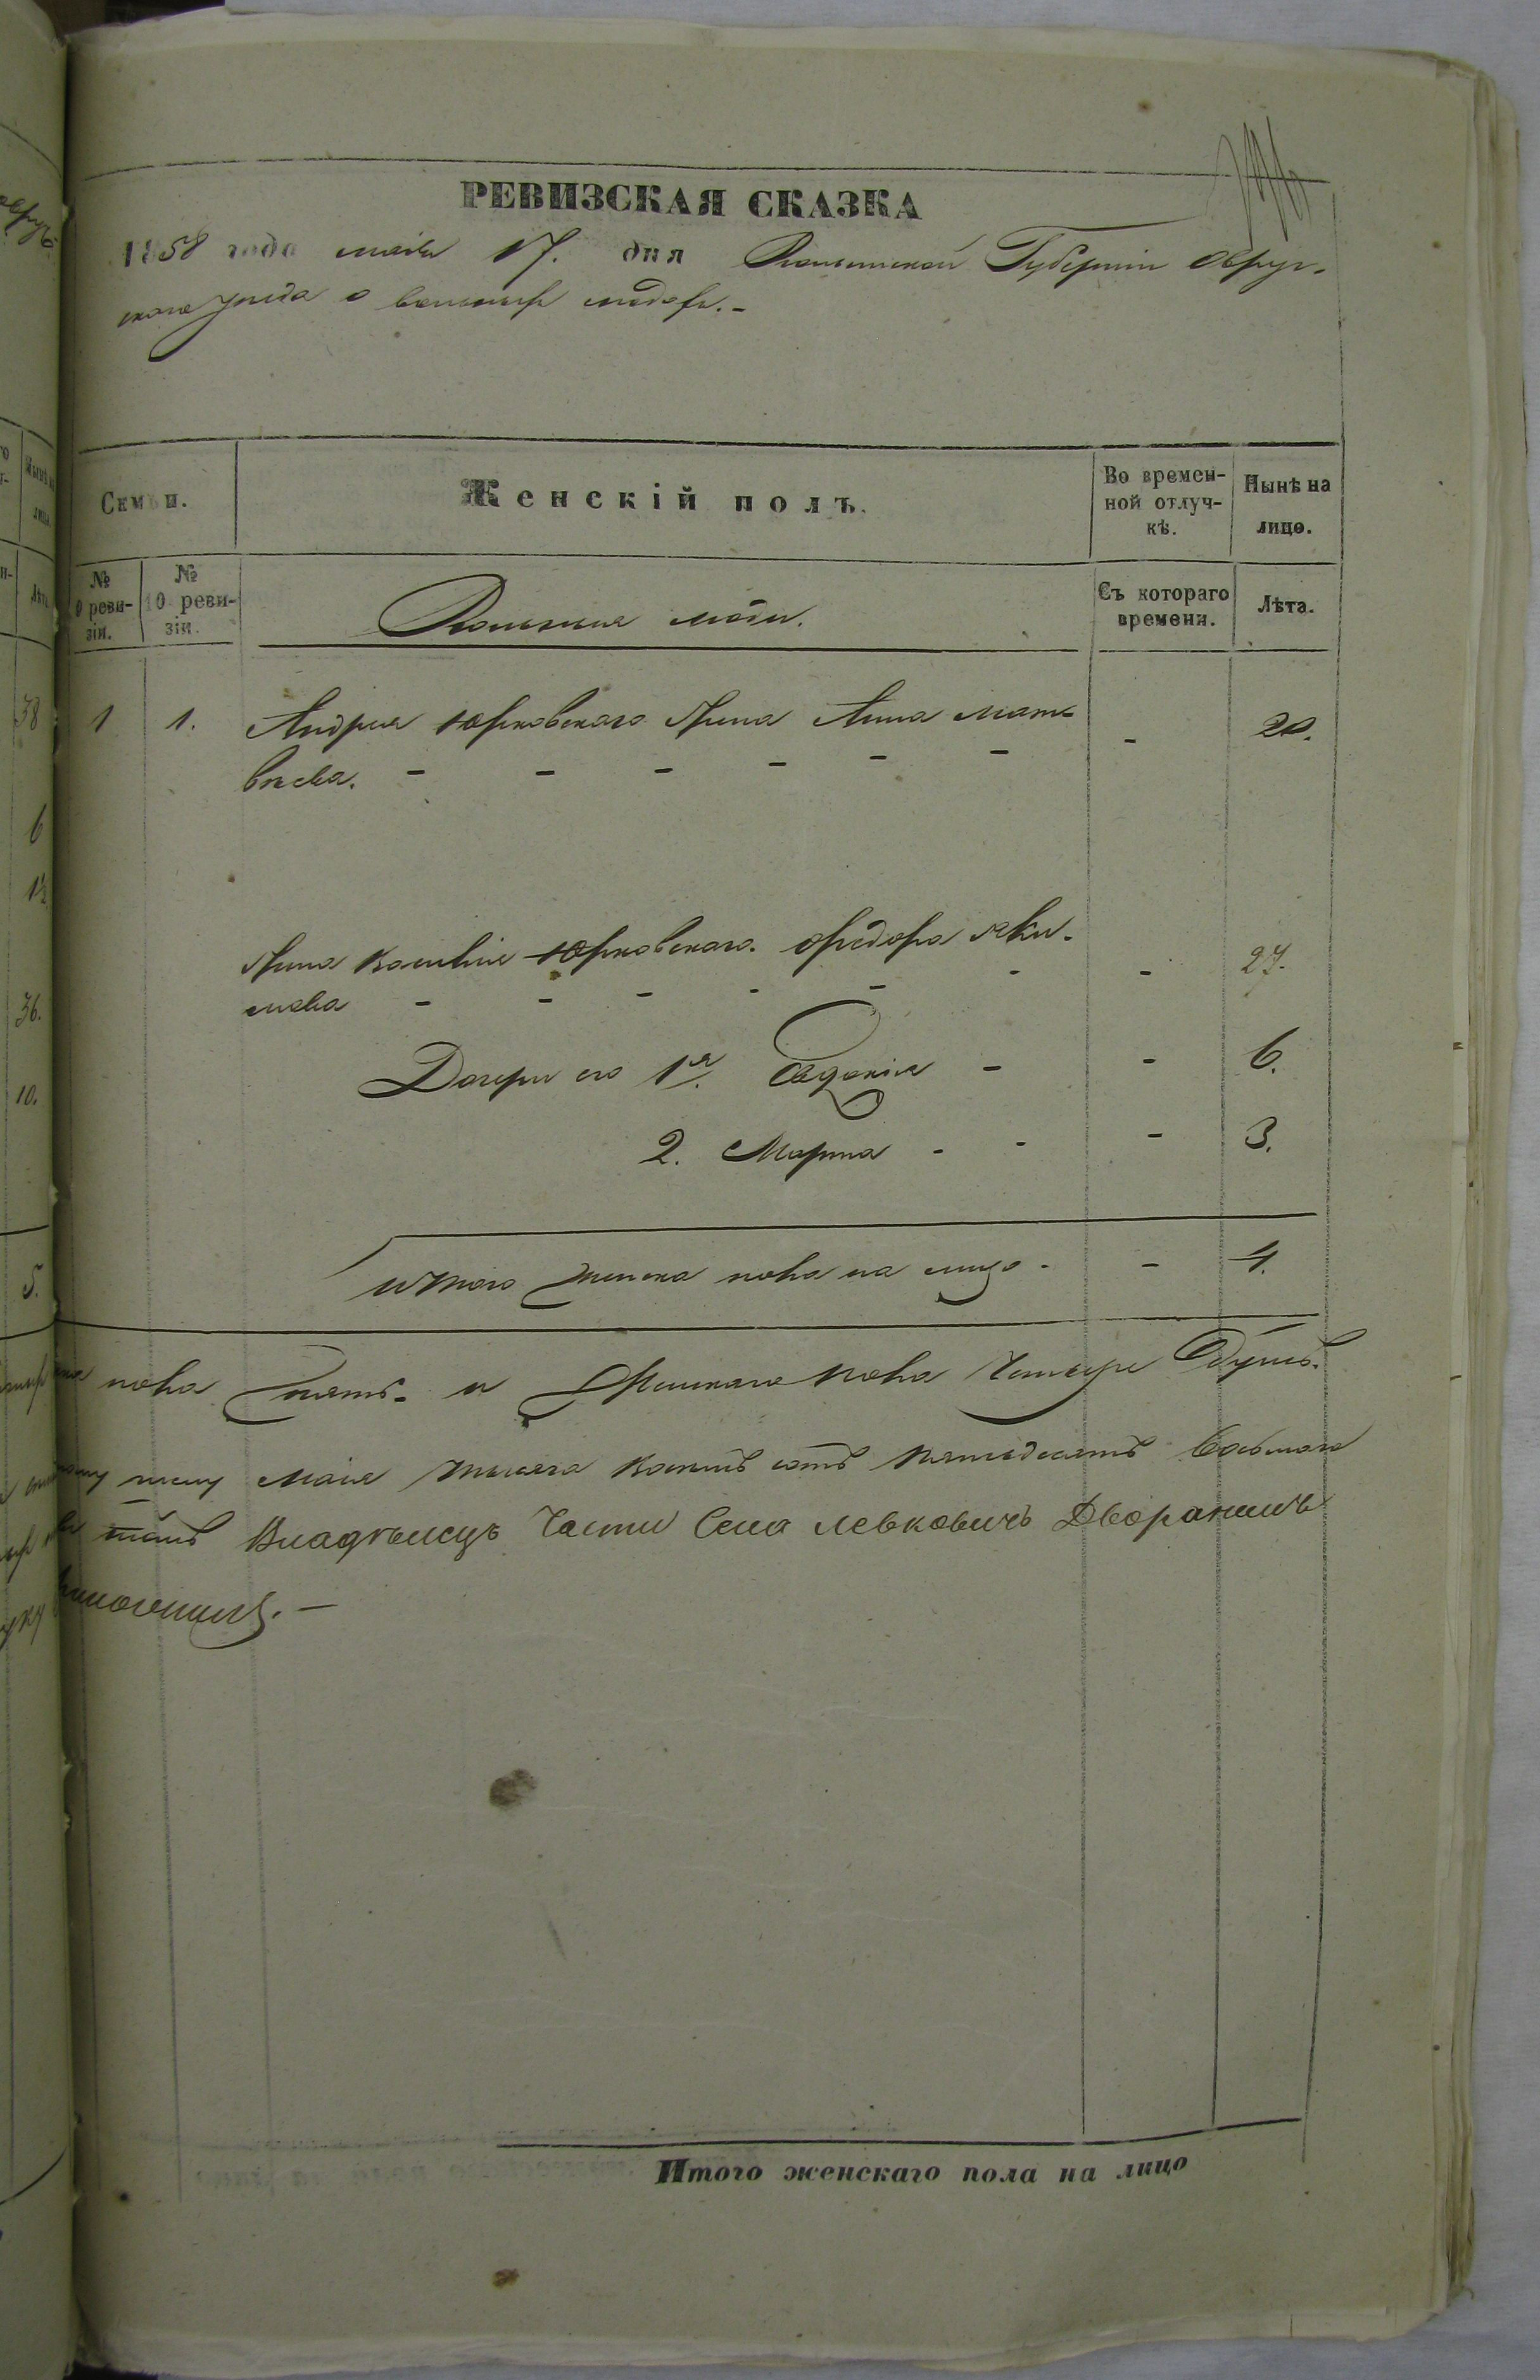 РЕВИЗСКАЯ СКАЗКА
1858 года маія 17. дня Волынской Губерніи Овруч-
скаго уѣзда о вольныхъ людяхъ.-
Семьи.
Женскій полъ.
Во времен-
ной отлуч-
кѣ.
Нынѣ на
лицо.
№
0 реви-
зіи.
№
10 реви-
зіи.
Вольные люди.
Съ котораго
времени.
Лѣта.
1 1. Андрея Юрковскаго Жена Анна Мат-
вѣева. - - - - - - - 20.
Жена Василія Юрковскаго Ѳедора Яки-
мова - - - - - - - 27.
Дочери его 1я Евдокія - - 6.
2. Марина - - - 3.
Итого женска пола на лицо - - 4.
пола пять и Женскаго пола Четыре Душъ.
маія тысяча восемъ сотъ пятьдесятъ восьмаго
Владѣлецъ Части Села Левковичъ Дворянинъ
Итого женскаго пола на лицо
38
6
36.
10.
5.